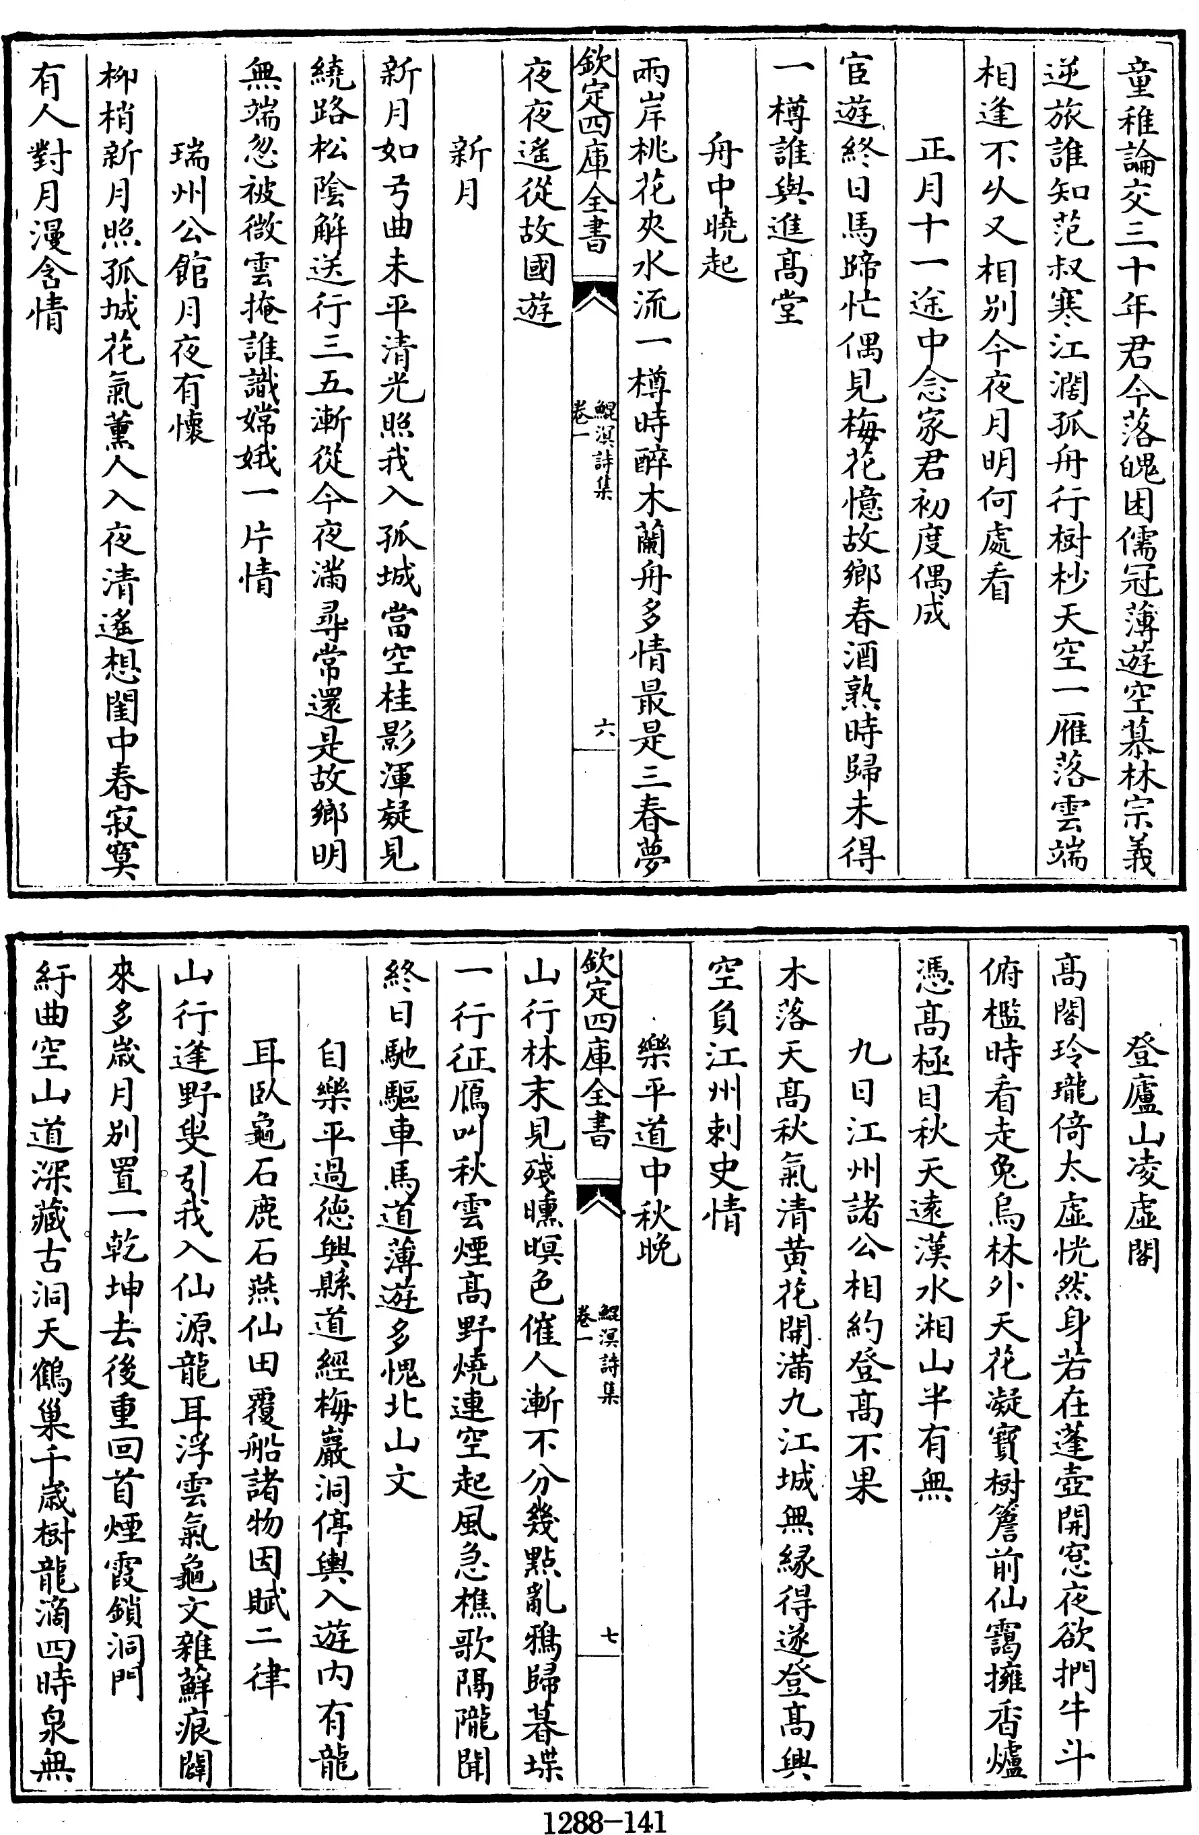 童稚論交三十年君今落魄困儒冠薄遊空慕林宗義
逆旅誰知范叔寒江濶孤舟行樹杪天空一雁落雲端
相逢不乆又相别今夜月明何處看
正月十一途中念家君初度偶成
宦遊終日馬蹄忙偶見梅花憶故鄉春酒熟時歸未得
一樽誰與進髙堂
舟中曉起
兩岸桃花夾水流一樽時醉木蘭舟多情最是三春夢
欽定四庫全書
鯤溟詩集
卷一
六
夜夜遙從故國遊
新月
新月如弓曲未平清光照我入孤城當空桂影渾疑見
繞路松陰解送行三五漸從今夜滿尋常還是故鄉明
無端忽被微雲掩誰識嫦娥一片情
瑞州公館月夜有懷
柳梢新月照孤城花氣薰人入夜清遙想閨中春寂寞
有人對月漫含情
登廬山凌虛閣
髙閣玲瓏倚太虛恍然身若在蓬壺開窓夜欲捫牛斗
俯檻時看走兔烏林外天花凝寳樹簷前仙靄擁香爐
憑髙極目秋天遠漢水湘山半有無
九日江州諸公相約登髙不果
木落天髙秋氣清黄花開滿九江城無縁得遂登髙興
空負江州刺史情
樂平道中秋晚
欽定四庫全書
鯤溟詩集
卷一
七
山行林末見殘曛暝色催人漸不分幾點亂鴉歸暮堞
一行征鴈叫秋雲煙髙野燒連空起風急樵歌隔隴聞
終日馳驅車馬道薄遊多愧北山文
自樂平過德興縣道經梅巖洞停輿入遊内有龍
耳臥龜石鹿石燕仙田覆船諸物因賦二律
山行逢野叟引我入仙源龍耳浮雲氣龜文雜蘚痕闢
來多歲月别置一乾坤去後重回首煙霞鎖洞門
紆曲空山道深藏古洞天鶴巢千歲樹龍滴四時泉無
1288-141